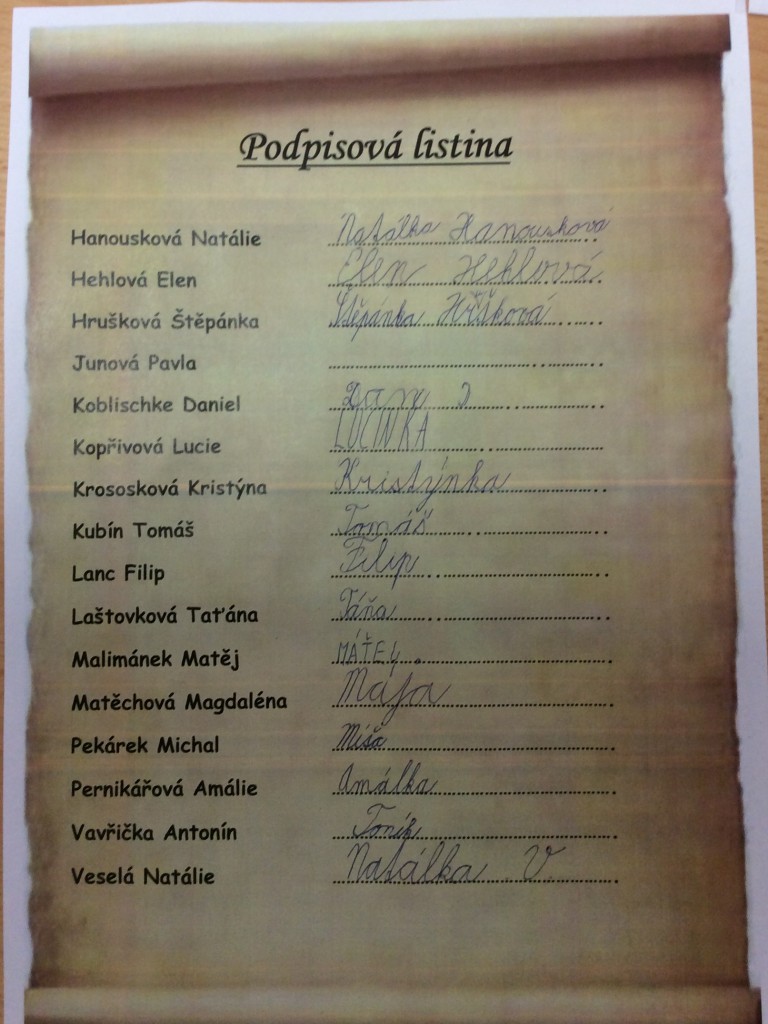 Podpisová listina
Hanousková Natálie Natálka Hanousková
Hehlová Elen Elen Hehlová
Hrušková Štěpánka Štěpánka Hršková
Junová Pavla
Koblischke Daniel
Kopřivová Lucie LUCINKA
Krososková Kristýna Kristýnka
Kubín Tomáš Tomáš
Lanc Filip Filip
Laštovková Taťána Táňa
Malimánek Matěj MÁŤEJ
Matěchová Magdaléna Mája
Pekárek Michal Míša
Pernikářová Amálie Amálka
Vavřička Antonín Toník
Veselá Natálie Natálka V.